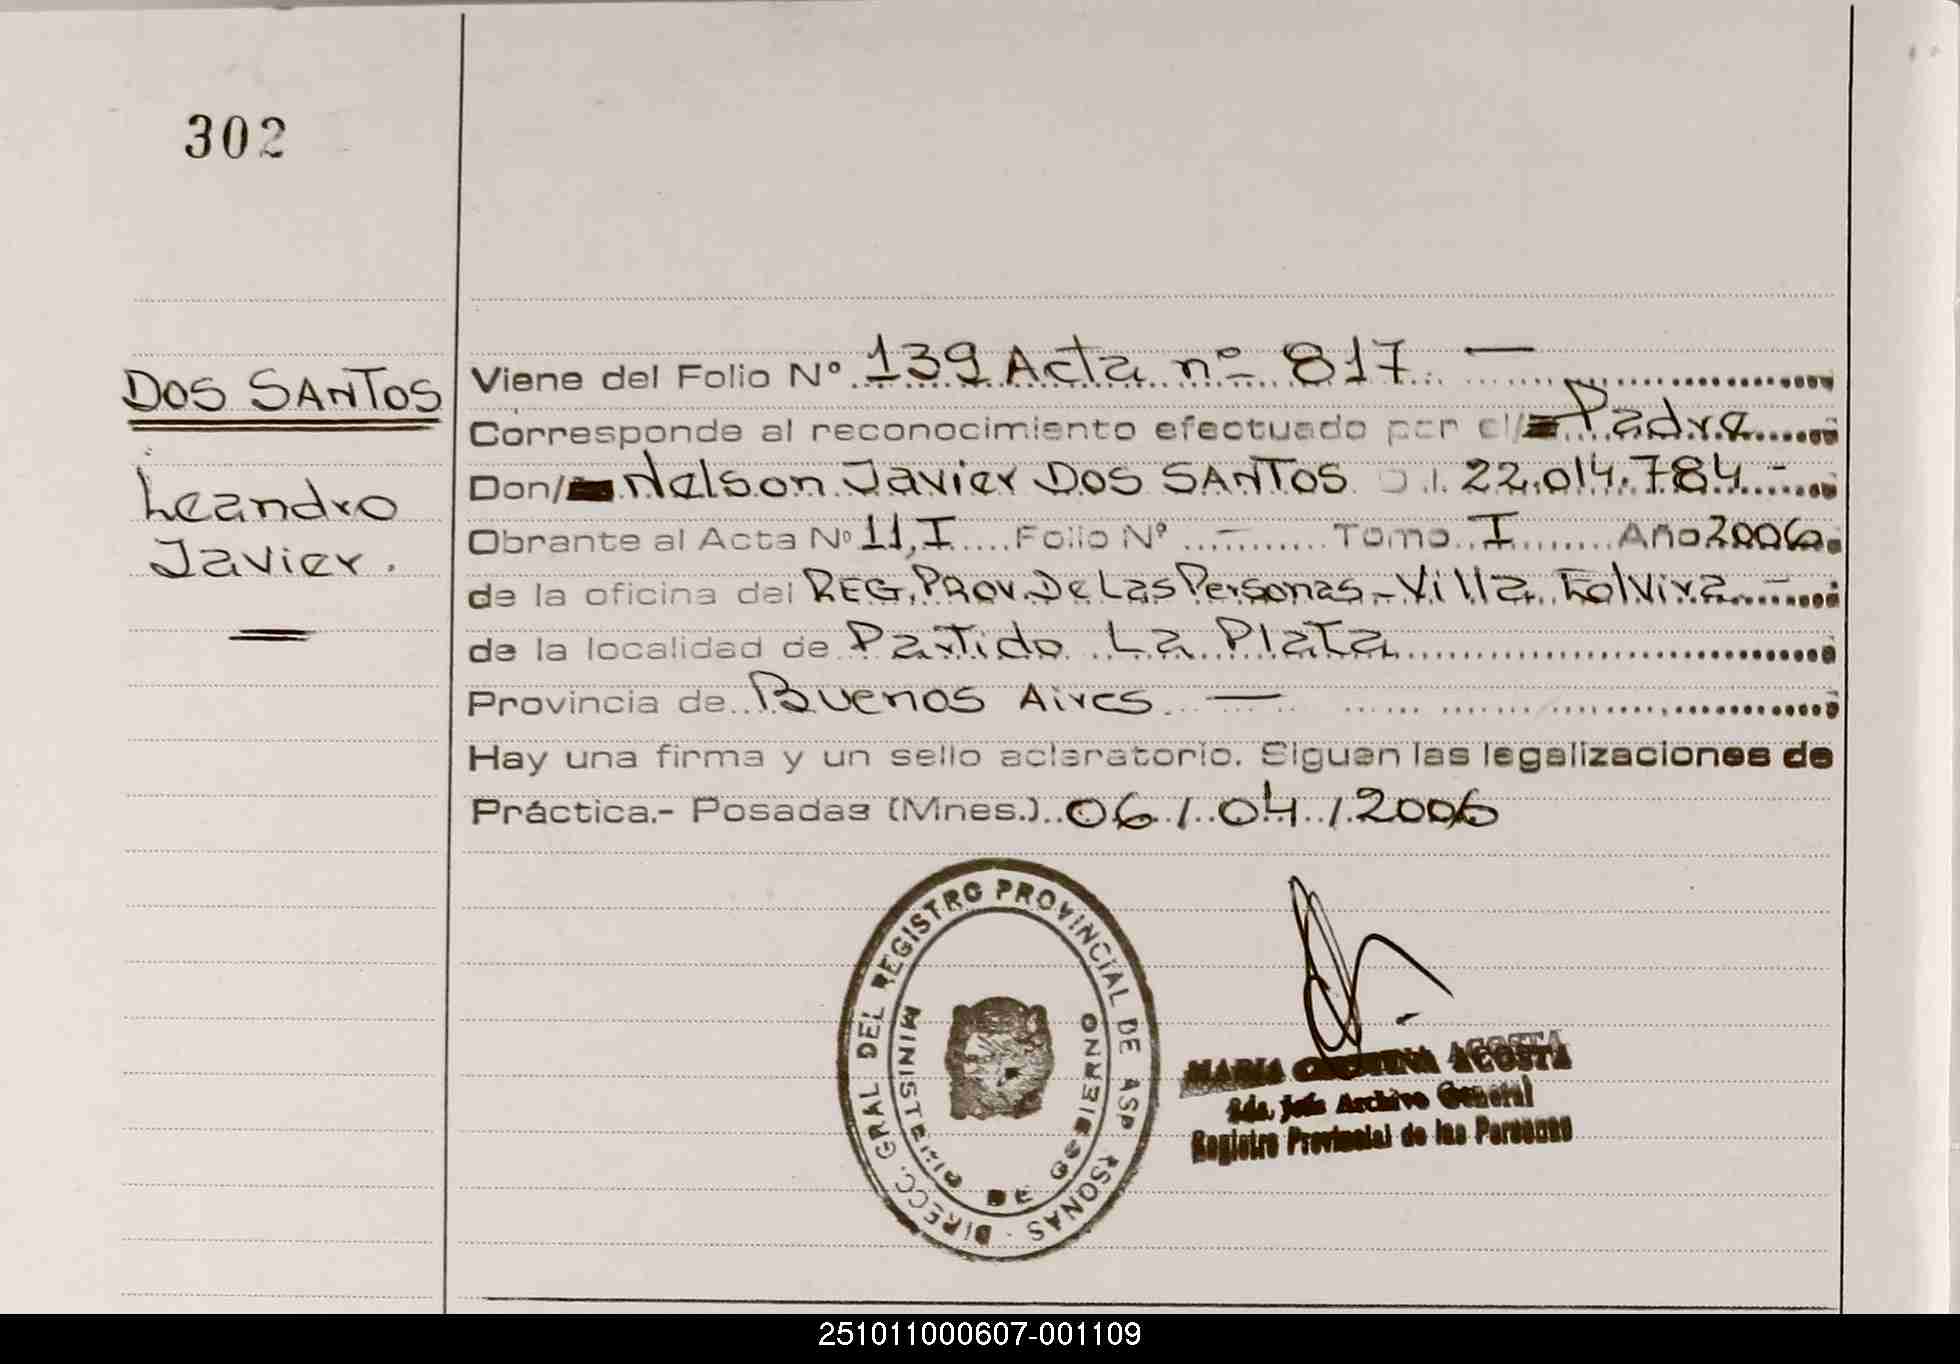 302
DOS SANTOS
Leandro
Javier.
Viene del Folio Nº 139 Acta nº 817. —
Corresponde al reconocimiento efectuado por el/ Padre
Don/ Nelson Javier DOS SANTOS D.I. 22.014.784 -
Obrante al Acta Nº 11, I Folio Nº — Tomo I Año 2006
de la oficina del REG. PROV. De Las Personas - Villa -
de la localidad de Partido La Plata
Provincia de Buenos Aires. —
Hay una firma y un sello aclaratorio. Siguen las legalizaciones de
Práctica.- Posadas (Mnes.) 06 / 04 / 2006
DIRECC. GRAL DEL REGISTRO PROVINCIAL DE ASP SONAS -
MINISTERIO DE GOBIERNO
MARIA CRISTINA ACOSTA
2da. Jefa Archivo General
Registro Provincial de las Personas
251011000607-001109